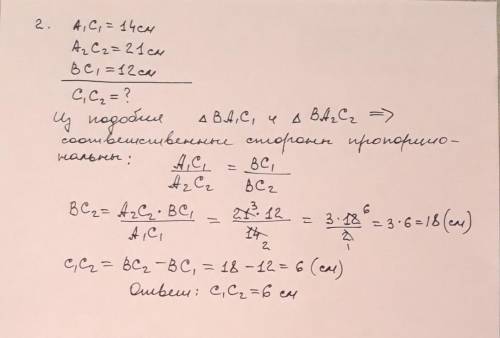 2. A₁C₁ = 14 см
A₂C₂ = 21 см
BC₁ = 12 см
C₁C₂ = ?
Из подобия △BA₁C₁ и △BA₂C₂ ⇒
соответственные стороны пропорцио-
нальны:
A₁C₁/A₂C₂ = BC₁/BC₂
BC₂ = A₂C₂·BC₁/A₁C₁ = 21³·12/14₂ = 3·18⁶/2₁ = 3·6 = 18 (см)
C₁C₂ = BC₂ − BC₁ = 18 − 12 = 6 (см)
Ответ: C₁C₂ = 6 см